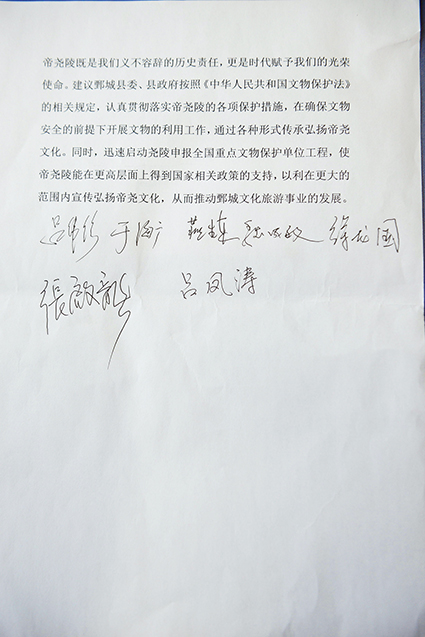 帝尧陵既是我们义不容辞的历史责任，更是时代赋予我们的光荣
使命。建议鄄城县委、县政府按照《中华人民共和国文物保护法》
的相关规定，认真贯彻落实帝尧陵的各项保护措施，在确保文物
安全的前提下开展文物的利用工作，通过各种形式传承弘扬帝尧
文化。同时，迅速启动尧陵申报全国重点文物保护单位工程，使
帝尧陵能在更高层面上得到国家相关政策的支持，以利在更大的
范围内宣传弘扬帝尧文化，从而推动鄄城文化旅游事业的发展。
于海广 燕生东 徐龙国
張啟龍 吕凤涛